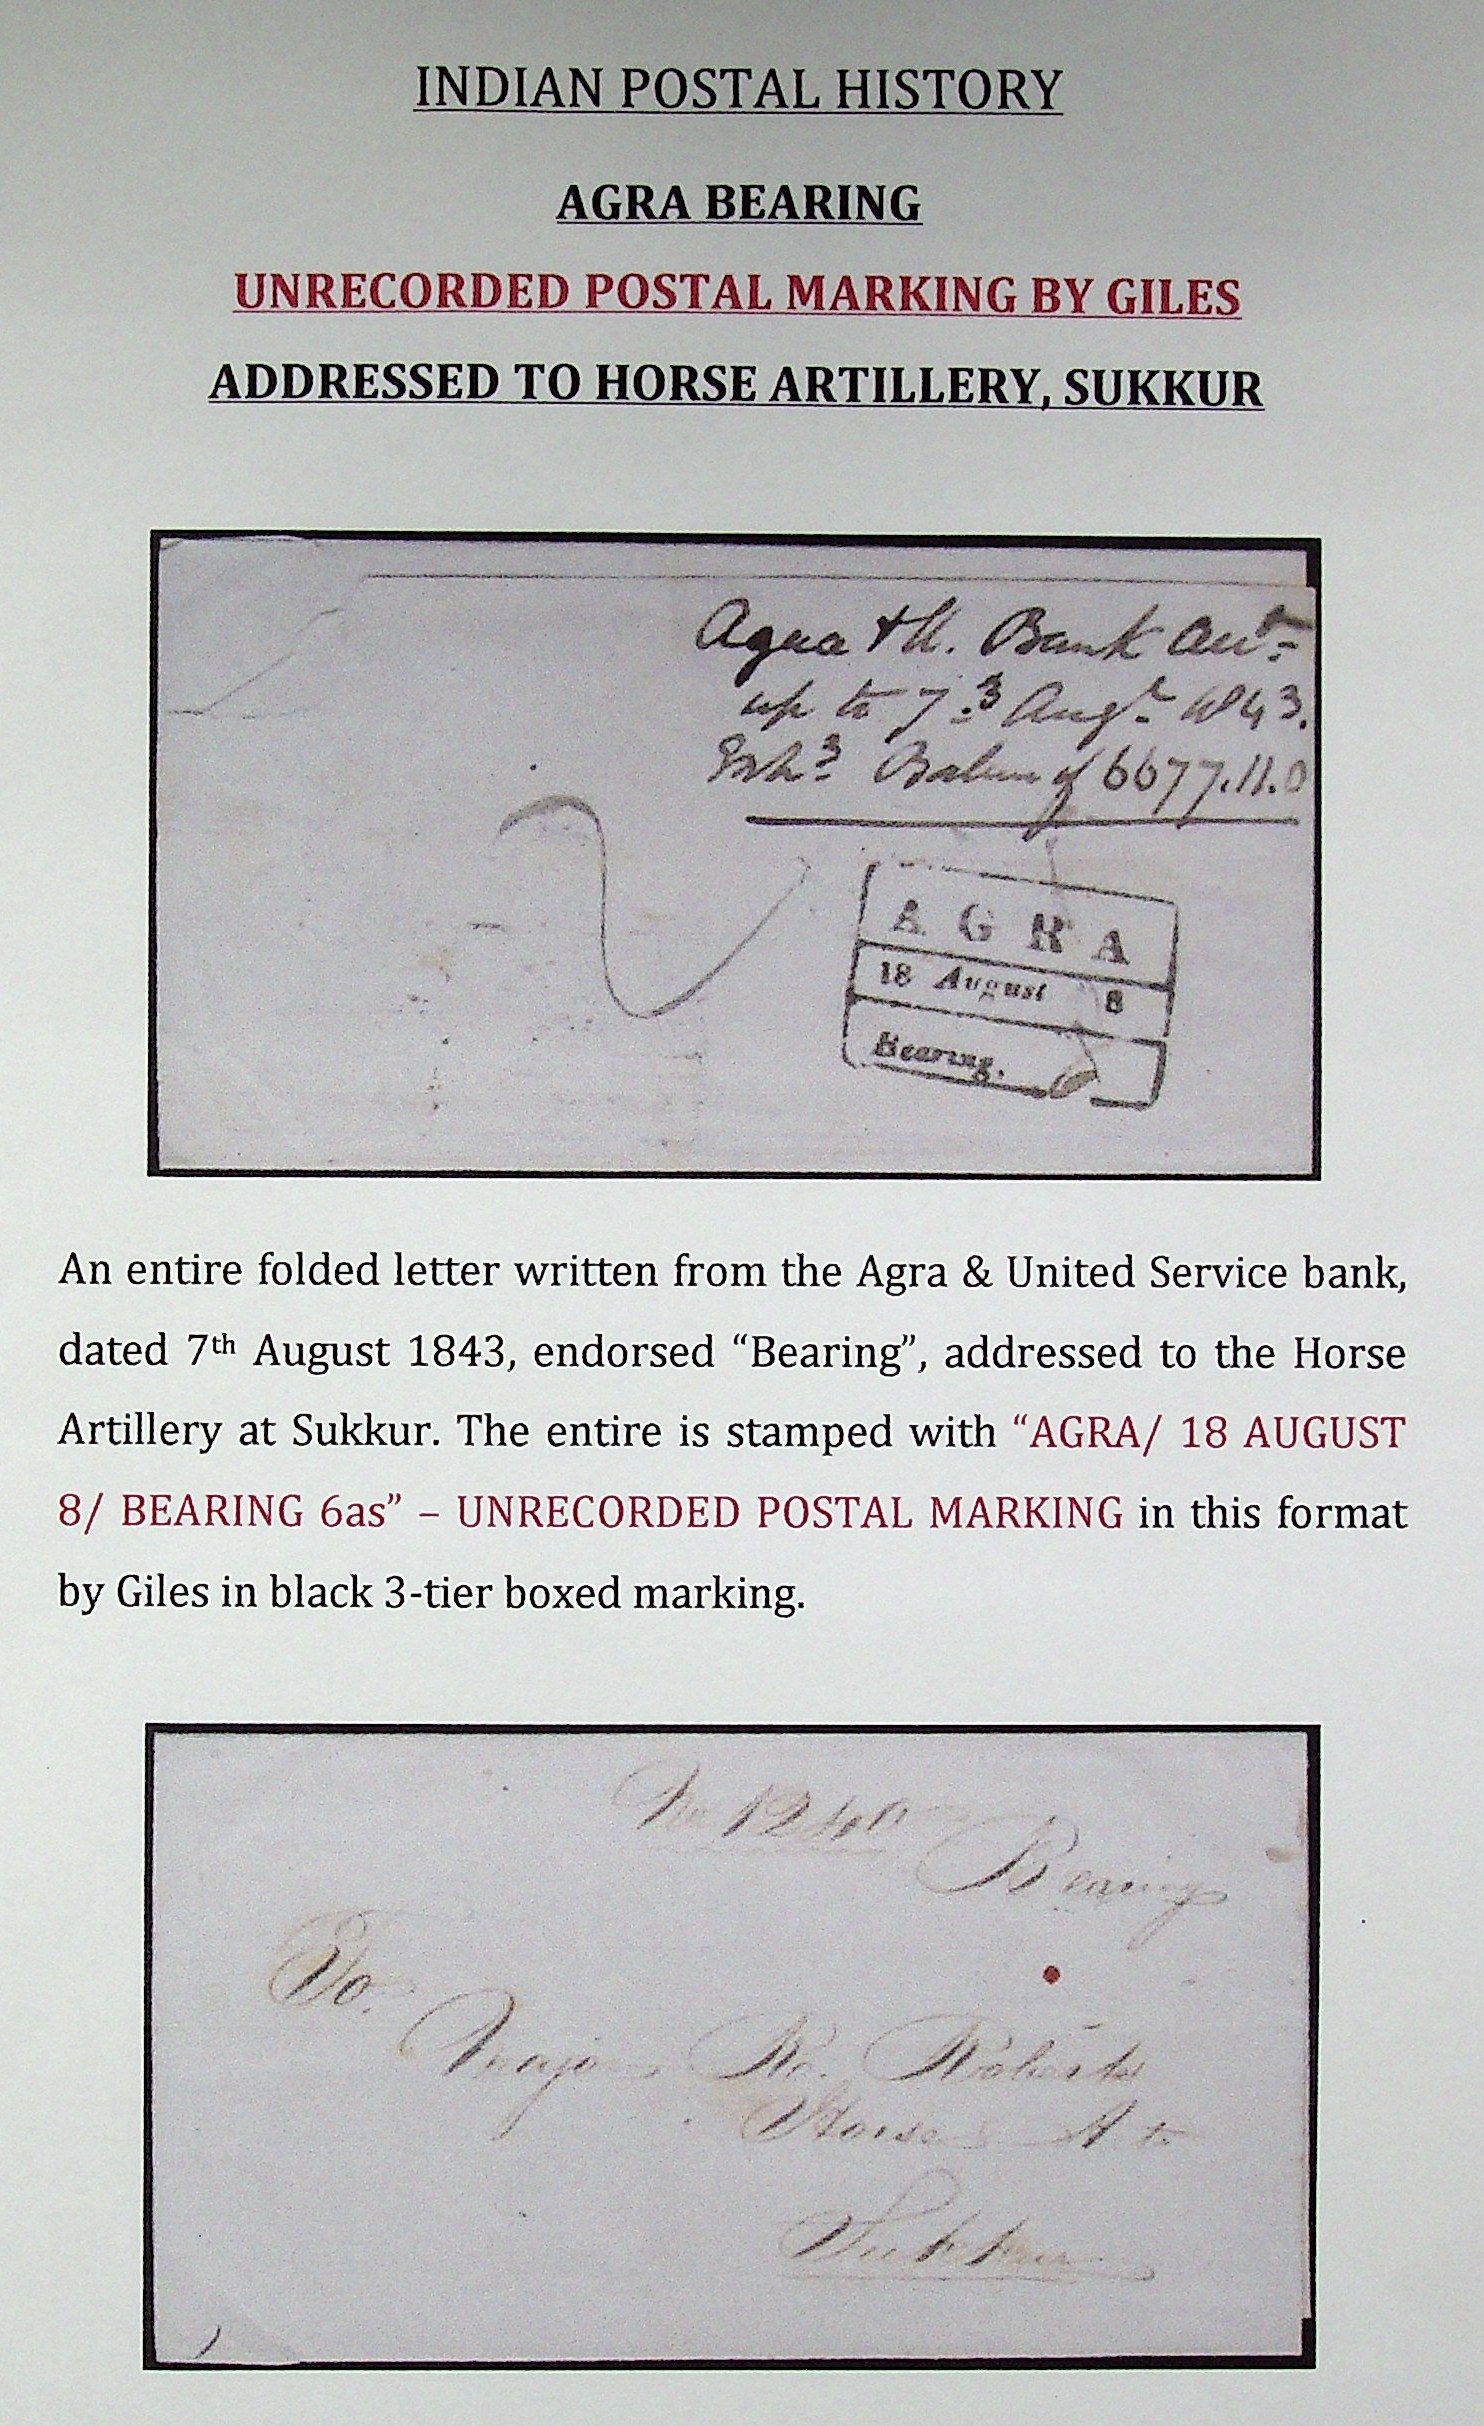 INDIAN POSTAL HISTORY
AGRA BEARING
UNRECORDED POSTAL MARKING BY GILES
ADDRESSED TO HORSE ARTILLERY, SUKKUR
Agra & U. Bank
up to 7 Augt 1843.
6677.11.0
AGRA
18 August 8
Bearing. 6
An entire folded letter written from the Agra & United Service bank,
dated 7th August 1843, endorsed “Bearing”, addressed to the Horse
Artillery at Sukkur. The entire is stamped with “AGRA/ 18 AUGUST
8/ BEARING 6as” – UNRECORDED POSTAL MARKING in this format
by Giles in black 3-tier boxed marking.
Bearing
To.
Major Roberts
Horse
Sukkur